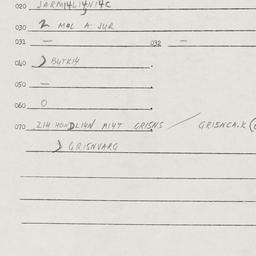 020 JARMI4LI4NI4C
030 2 MOL A JUR
031 — 032 —
040 ) BUTKI4
050 —
060 0
070 ZI4 HONDLI4N MI4T GRISNS / GRISNCA.K (
) GRISNVARG